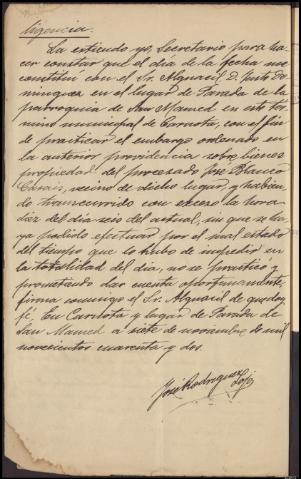 ligencia.
La extiendo yo, Secretario para ha-
cer constar que el día de la fecha me
constituí con el Sr. Alguacil D. Justo Do-
minguez en el lugar de Parada de la
parroquia de San Mamed en este tér-
mino municipal de Carnota, con el fin
de practicar el embargo ordenado en
la anterior providencia sobre bienes
propiedad del procesado José Blanco
vecino de dicho lugar, y habien-
do transcurrido con exceso la hora
diez del día seis del actual, sin que se ha-
ya podido efectuar por el mal estado
del tiempo que lo hubo de impedir en
la totalidad del día, no se practicó y
prometiendo dar cuenta oportunamente,
firma conmigo el Sr. Alguacil de que doy
fé. En Carnota y lugar de Parada de
San Mamed a siete de noviembre de mil
novecientos cuarenta y dos.
José Rodriguez